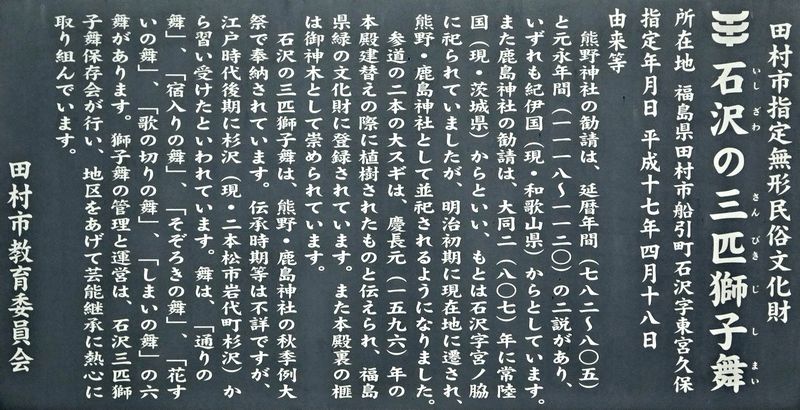 田村市指定無形民俗文化財
石沢の三匹獅子舞
いしざわ さんびきじしまい
所在地 福島県田村市船引町石沢字東宮久保
指定年月日 平成十七年四月十八日
由来等
熊野神社の勧請は、延暦年間（七八二〜八〇五）
と元永年間（一一一八〜一一二〇）の二説があり、
いずれも紀伊国（現・和歌山県）からとしています。
また鹿島神社の勧請は、大同二（八〇七）年に常陸
国（現・茨城県）からといい、もとは石沢字宮ノ脇
に祀られていましたが、明治初期に現在地に遷され、
熊野・鹿島神社として並祀されるようになりました。
参道の二本の大スギは、慶長元（一五九六）年の
本殿建替えの際に植樹されたものと伝えられ、福島
県緑の文化財に登録されています。また本殿裏の榧
は御神木として崇められています。
石沢の三匹獅子舞は、熊野・鹿島神社の秋季例大
祭で奉納されています。伝承時期等は不詳ですが、
江戸時代後期に杉沢（現・二本松市岩代町杉沢）か
ら習い受けたといわれています。舞は、「通りの
舞」、「宿入りの舞」、「そぞろきの舞」、「花す
いの舞」、「歌の切りの舞」、「しまいの舞」の六
舞があります。獅子舞の管理と運営は、石沢三匹獅
子舞保存会が行い、地区をあげて芸能継承に熱心に
取り組んでいます。
田村市教育委員会